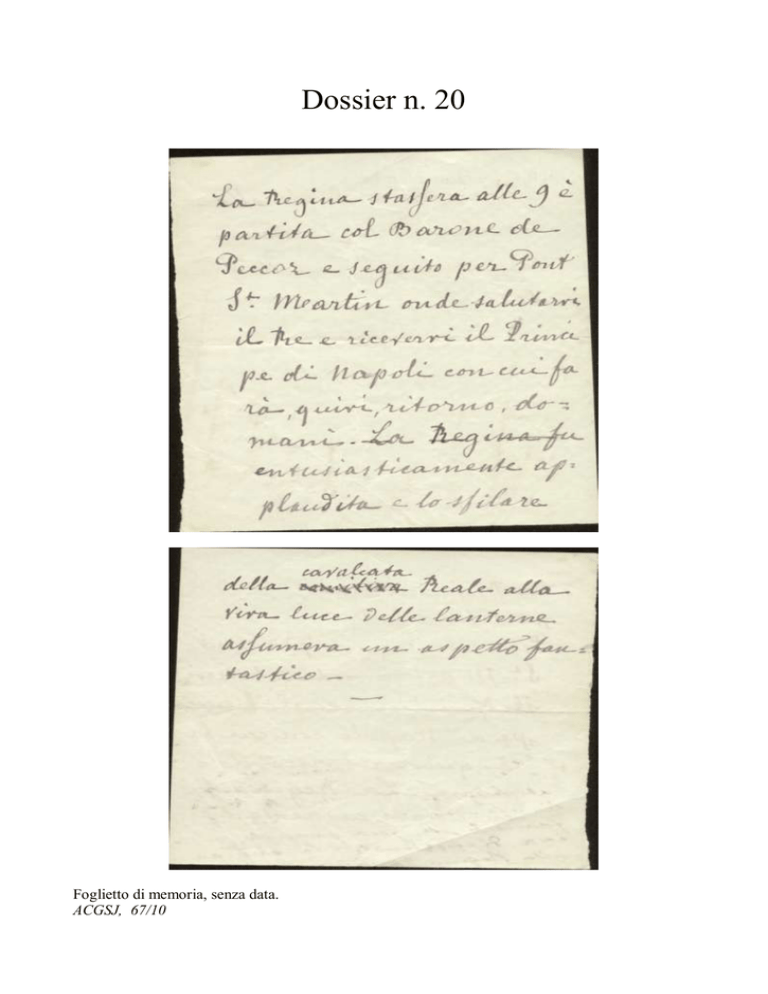 Dossier n. 20
La Regina stassera alle 9 è
partita col Barone de
Peccoz e seguito per Pont
St. Martin onde salutarvi
il Re e ricevervi il Princi
pe di Napoli con cui fa
rà, quivi, ritorno, do=
mani. La Regina fu
entusiasticamente ap=
plaudita e lo sfilare
cavalcata
della Reale alla
viva luce delle lanterne
assumeva un aspetto fan=
tastico —
Foglietto di memoria, senza data.
ACGSJ, 67/10